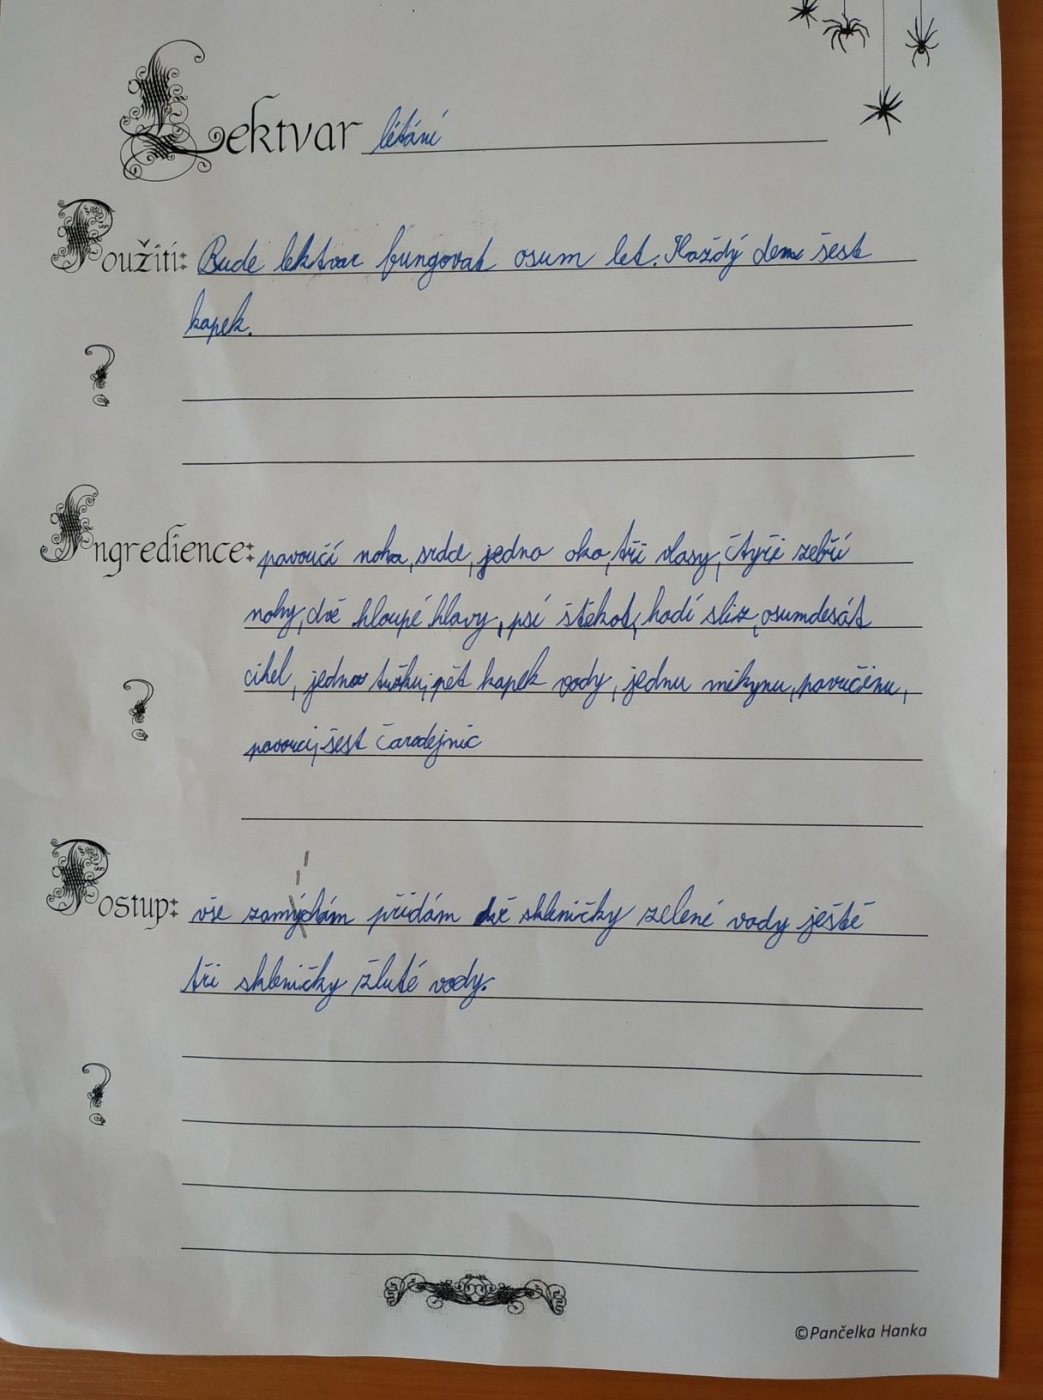 Lektvar létání
Použití: Bude lektvar fungovat osum let. Každý den šest
kapek.
?
Ingredience: pavoučí noha, srdce, jedno oko, tři vlasy, čtyři zebří
nohy, dvě hloupé hlavy, psí štěkot, hadí sliz, osumdesát
cihel, jednou tužku, pět kapek vody, jednu mikynu, pavučinu,
?
pavouci, šest čarodejnic
Postup: vše zamýchám přidám dvě skleničky zelené vody ještě
tři skleničky žluté vody.
?
©Pančelka Hanka